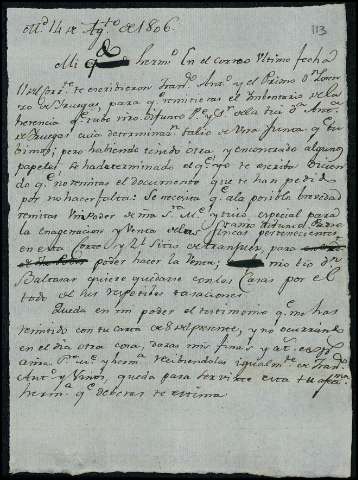 M.d 14 de Ag.to de 1806. 113
Mi herm.o En el correo Ultimo fecha
te escrivieron Fran.co Ant.o y el Primo D.n Loren
zo de Bruegas, para q.e remitieras el Inventario de la
herencia q.e tubo nro. Difunto P.e de la tia D.a Ant.a
de Bruegas cuia determinaz.n salio de Una Junta q.e tu
bimos; pero habiendo tenido otra, y encontrado algunos
papeles, se ha determinado el q.e yo te escriba dicien
do q.e no remitas el documento que te han pedido
por no hacer falta: Se necesita q.e a la posible brevedad
remitas Un Poder de ma S.a M.e y tuio especial para
la enagenacion y Venta de las fincas pertenecientes
en esta Corte y 2 Sitas de para
poder hacer la Venta; mio tio D.n
Baltasar quiere quedarse con las Casas por el
todo de sus respetibas tasaciones.
Queda en mi poder el testimonio q.e me has
remitido con tu carta de 8 del presente, y no ocurriendo
en el dia otra cosa, daras mis finas
y herm.a recibiendolas igualm.te de Fran.co
Ant.o y Vinos, queda para servirte esta tu afta.
herm.a q.e de beras te estima